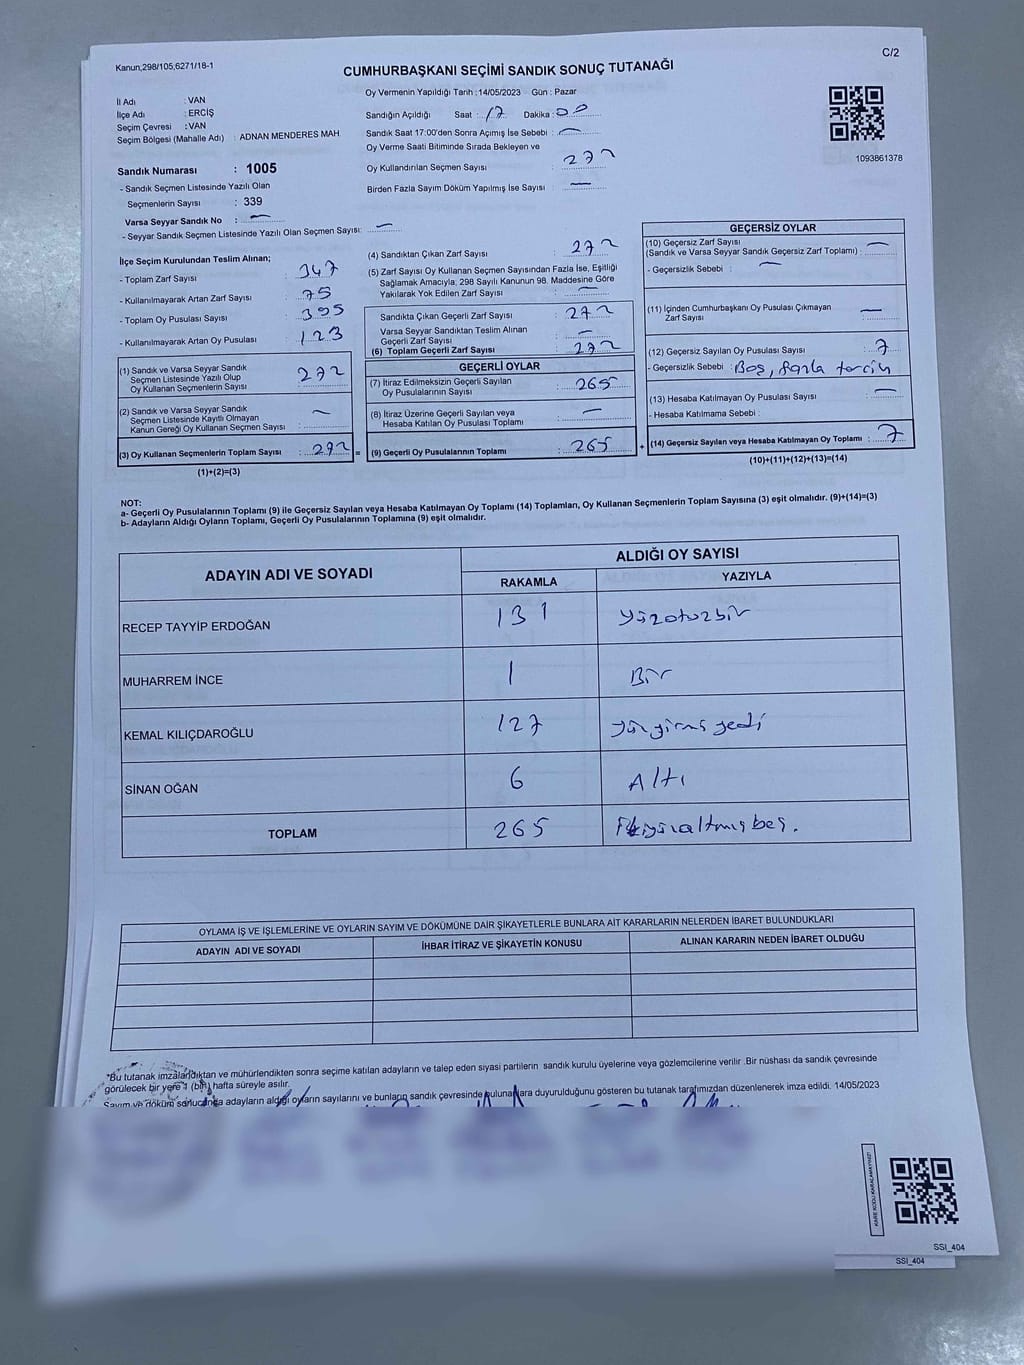 Kanun,298/105,6271/18-1
C/2
CUMHURBAŞKANI SEÇİMİ SANDIK SONUÇ TUTANAĞI
İl Adı : VAN
İlçe Adı : ERCİŞ
Seçim Çevresi : VAN
Seçim Bölgesi (Mahalle Adı) : ADNAN MENDERES MAH.
Sandık Numarası : 1005
- Sandık Seçmen Listesinde Yazılı Olan
Seçmenlerin Sayısı : 339
Varsa Seyyar Sandık No : —
- Seyyar Sandık Seçmen Listesinde Yazılı Olan Seçmen Sayısı: —
Oy Vermenin Yapıldığı Tarih :14/05/2023 Gün : Pazar
Sandığın Açıldığı Saat : 17 Dakika : 00
Sandık Saat 17:00'den Sonra Açımış İse Sebebi : —
Oy Verme Saati Bitiminde Sırada Bekleyen ve
Oy Kullandırılan Seçmen Sayısı 272
Birden Fazla Sayım Döküm Yapılmış İse Sayısı —
1093861378
İlçe Seçim Kurulundan Teslim Alınan;
- Toplam Zarf Sayısı : 347
- Kullanılmayarak Artan Zarf Sayısı : 75
- Toplam Oy Pusulası Sayısı : 395
- Kullanılmayarak Artan Oy Pusulası : 123
(1) Sandık ve Varsa Seyyar Sandık
Seçmen Listesinde Yazılı Olup
Oy Kullanan Seçmenlerin Sayısı : 272
(2) Sandık ve Varsa Seyyar Sandık
Seçmen Listesinde Kayıtlı Olmayan
Kanun Gereği Oy Kullanan Seçmen Sayısı : —
(3) Oy Kullanan Seçmenlerin Toplam Sayısı : 272 =
(1)+(2)=(3)
(4) Sandıktan Çıkan Zarf Sayısı : 272
(5) Zarf Sayısı Oy Kullanan Seçmen Sayısından Fazla İse, Eşitliği
Sağlamak Amacıyla, 298 Sayılı Kanunun 98. Maddesine Göre
Yakılarak Yok Edilen Zarf Sayısı : —
Sandıkta Çıkan Geçerli Zarf Sayısı : 272
Varsa Seyyar Sandıktan Teslim Alınan
Geçerli Zarf Sayısı : —
(6) Toplam Geçerli Zarf Sayısı : 272
GEÇERLİ OYLAR
(7) İtiraz Edilmeksizin Geçerli Sayılan
Oy Pusulalarının Sayısı : 265
(8) İtiraz Üzerine Geçerli Sayılan veya
Hesaba Katılan Oy Pusulası Toplamı : —
(9) Geçerli Oy Pusulalarının Toplamı : 265 +
GEÇERSİZ OYLAR
(10) Geçersiz Zarf Sayısı : —
(Sandık ve Varsa Seyyar Sandık Geçersiz Zarf Toplamı)
- Geçersizlik Sebebi : —
(11) İçinden Cumhurbaşkanı Oy Pusulası Çıkmayan
Zarf Sayısı : —
(12) Geçersiz Sayılan Oy Pusulası Sayısı : 7
- Geçersizlik Sebebi : Boş, fazla tercih
(13) Hesaba Katılmayan Oy Pusulası Sayısı : —
- Hesaba Katılmama Sebebi :
(14) Geçersiz Sayılan veya Hesaba Katılmayan Oy Toplamı : 7
(10)+(11)+(12)+(13)=(14)
NOT:
a- Geçerli Oy Pusulalarının Toplamı (9) ile Geçersiz Sayılan veya Hesaba Katılmayan Oy Toplamı (14) Toplamları, Oy Kullanan Seçmenlerin Toplam Sayısına (3) eşit olmalıdır. (9)+(14)=(3)
b- Adayların Aldığı Oyların Toplamı, Geçerli Oy Pusulalarının Toplamına (9) eşit olmalıdır.
ADAYIN ADI VE SOYADI
ALDIĞI OY SAYISI
RAKAMLA YAZIYLA
RECEP TAYYİP ERDOĞAN 131 Yüzotuzbir
MUHARREM İNCE 1 Bir
KEMAL KILIÇDAROĞLU 127 yüzyirmiyedi
SİNAN OĞAN 6 Altı
TOPLAM 265 İkiyüzaltmışbeş.
OYLAMA İŞ VE İŞLEMLERİNE VE OYLARIN SAYIM VE DÖKÜMÜNE DAİR ŞİKAYETLERLE BUNLARA AİT KARARLARIN NELERDEN İBARET BULUNDUKLARI
ADAYIN ADI VE SOYADI İHBAR İTİRAZ VE ŞİKAYETİN KONUSU ALINAN KARARIN NEDEN İBARET OLDUĞU
*Bu tutanak imzalandıktan ve mühürlendikten sonra seçime katılan adayların ve talep eden siyasi partilerin sandık kurulu üyelerine veya gözlemcilerine verilir .Bir nüshası da sandık çevresinde
görülecek bir yere 1 (bir) hafta süreyle asılır.
Sayım ve döküm sonucunda adayların aldığı oyların sayılarını ve bunların sandık çevresinde bulunanlara duyurulduğunu gösteren bu tutanak tarafımızdan düzenlenerek imza edildi. 14/05/2023
SSI_404
SSI_404